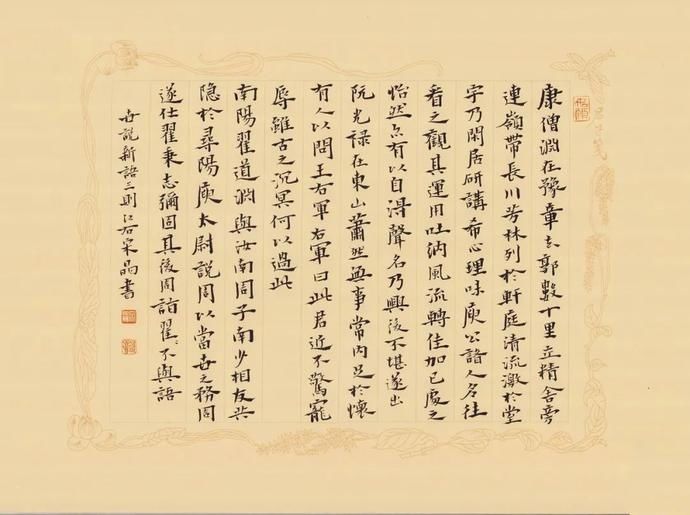 康僧渊在豫章去郭數十里立精舍旁
連嶺帶長川芳林列於軒庭清流激於堂
宇乃閑居研講希心理味庾公諸人多往
看之觀其運用吐納風流轉佳加已處之
怡然亦有以自得聲名乃興後不堪遂出
阮光禄在東山蕭然無事常内足於懷
有人以問王右軍右軍曰此君近不驚寵
辱雖古之沉冥何以過此
南陽翟道渊與汝南周子南少相友共
隐於尋陽庾太尉説周以當世之務周
遂仕翟秉志彌固其後周詣翟翟不與語
世説新語三則江右宋晶書